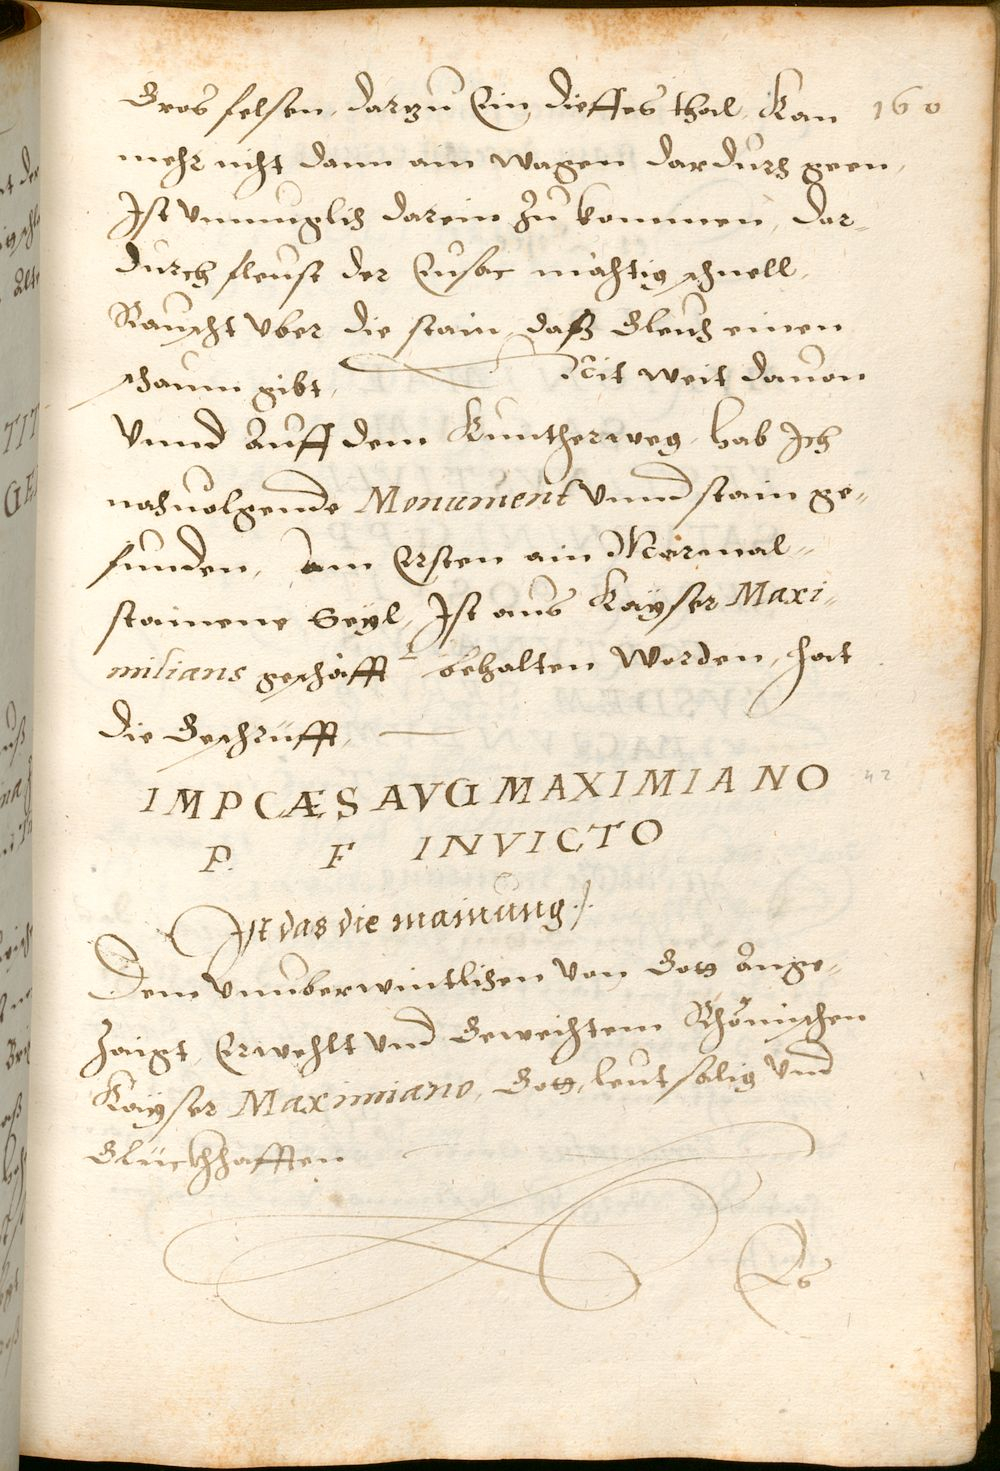 Gros felsen, darzu Ein dieffes thal, Kan 160
mehr nicht dann ain wagen dardurch geen,
Ist vnmuglich darein zu kommen, dar-
durch fleust der Eysac mächtig schnell,
Rauscht vber die stain, daß Gleich einen
schaum gibt. Nit weit dauon
Vnnd Auff dem Kuntherweg, hab Ich
nachuolgende Monument vnnd stain ge-
funden, Am Ersten ain Marmal-
stainene Seyl, Ist aus Kayser Maxi-
milians geschäfft behalten Worden, hat
die Geschrüfft,
IMP CÆS AVG MAXIMIANO 42
P. F INVICTO
Ist das die mainung.
Dem vnuberwintlichen von Gott Ange-
zaigt, Erwehlt vnd Geweichtem Rhömischen
Kayser Maximiano, Gott, leutsalig vnd
Glückhhafften
Es